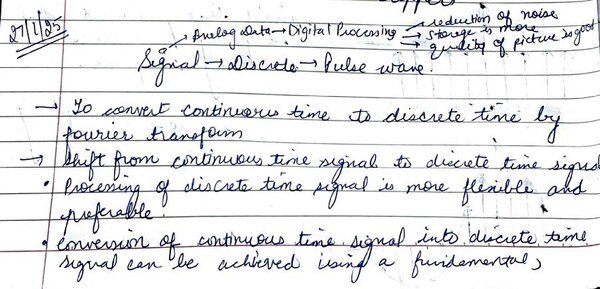 27/1/25
Analog Data → Digital Processing → reduction of noise
→ storage is more
→ quality of picture is good
Signal → Discrete → Pulse wave.
→ To convert continuous time to discrete time by
fourier transform
→ Shift from continuous time signal to discrete time signal
• Processing of discrete time signal is more flexible and
preferable.
• Conversion of continuous time signal into discrete time
signal can be achieved using a fundamental,